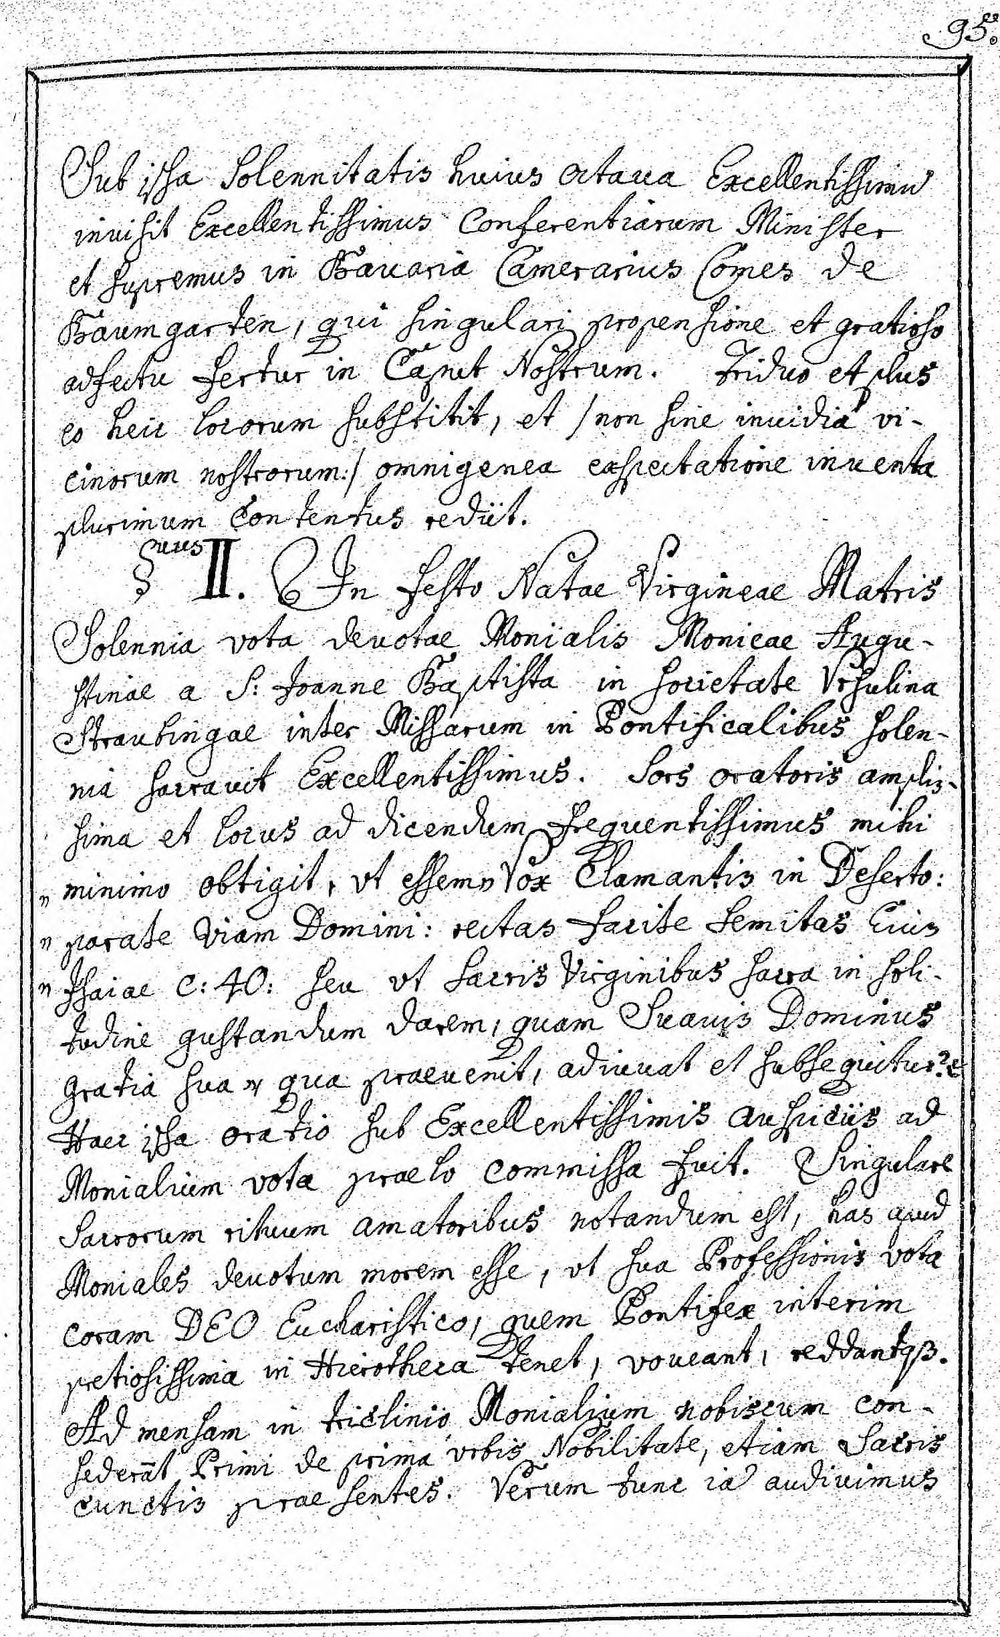 95.
Sub ipsa Solennitatis huius octaua Excellentissimū
inuisit Excellentissimus Conferentiarum Minister
et supremus in Bauaria Camerarius Comes de
Baumgarten, qui singulari propensione et gratioso
adfectu fertur in Caput Nostrum. Triduo et plus
eo heic locorum substitit, et /non sine inuidia vi-
cinorum nostrorum:/ omnigenea exspectatione inuenta
plurimum Contentus rediit.
§uus II. In festo Natae Virgineae Matris
Solennia vota deuotae Monialis Monicae Augu-
stinae a S: Joanne Baptista in societate Vrsulina
Straubingae inter Missarum in Pontificalibus solen-
nia sacrauit Excellentissimus. Sors oratoris amplis-
sima et locus ad dicendum frequentissimus mihi
„ minimo obtigit, vt essem„ Vox Clamantis in Deserto:
„ parate Viam Domini: rectas facite semitas Eius
„ Isaiae C: 40: seu vt sacris Virginibus sacra in soli-
tudine gustandum darem, quam Suauis Dominus
gratia sua, qua praeuenit, adiuuat et subsequitur?
Haec ipsa oratio sub Excellentissimis auspiciis ad
Monialium vota praelo commissa fuit. Singulare
Sacrorum rituum amatoribus notandum est, has apud
Moniales deuotum morem esse, vt sua Professionis vota
coram DEO Eucharistico, quem Pontifex interim
pretiosissima in Hierotheca tenet, voueant, reddantqß.
Ad mensam in triclinio Monialium nobiscum con-
sederāt Primi de prima vrbis Nobilitate, etiam Sacris
cunctis praesentes. Verum tunc ia audiuimus